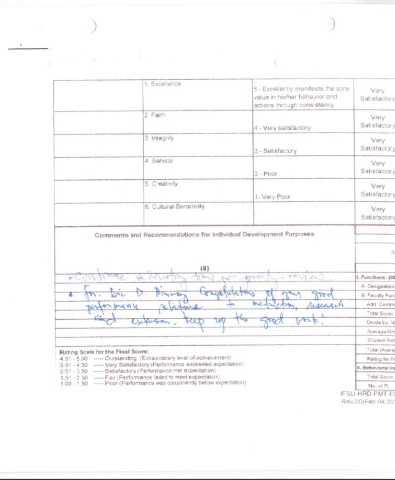 1. Excellence
5 - Excellently manifests the core value in his/her behavior and actions through consistency.
Very Satisfactory
2. Faith
4 - Very satisfactory
Very Satisfactory
3. Integrity
3 - Satisfactory
Very Satisfactory
4. Service
2 - Poor
Very Satisfactory
5. Creativity
1- Very Poor
Very Satisfactory
6. Cultural-Sensitivity
Very Satisfactory
Comments and Recommendations for Individual Development Purposes
(8)
Continue
For. D. Congratulations of your good
performing relative to instruction, research
and extension. Keep up the good work!
I. Functions:
A. Designation
B. Faculty
Add: Comm
Total Score
Divide by: N
Student Rat
Rating for P
II. Behavioral In
Total Score
No. of
Rating Scale for the Final Score:
4.51 - 5.00 ----- Outstanding (Extraordinary level of achievement)
3.51 - 4.50 ----- Very Satisfactory (Performance exceeded expectation)
2.51 - 3.50 ----- Satisfactory (Performance met expectation)
1.51 - 2.50 ----- Fair (Performance failed to meet expectation)
1.00 - 1.50 ----- Poor (Performance was consistently below expectation)
IFSU-HRD-PMT-F
Rev.00(Feb.04,20